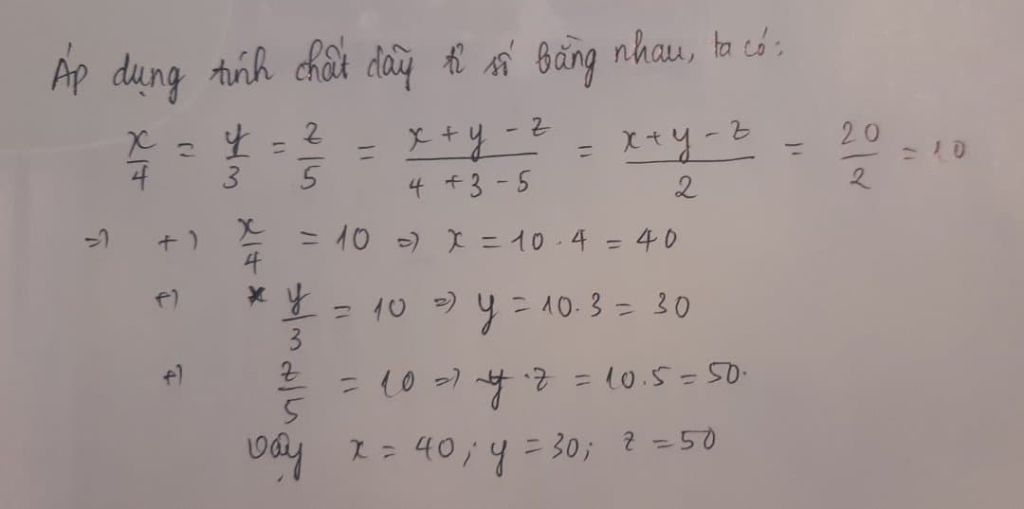 Áp dụng tính chất dãy tỉ số bằng nhau, ta có:
x/4 = y/3 = z/5 = (x + y - z)/(4 + 3 - 5) = (x + y - z)/2 = 20/2 = 10
=> +) x/4 = 10 => x = 10 . 4 = 40
+) y/3 = 10 => y = 10 . 3 = 30
+) z/5 = 10 => z = 10 . 5 = 50.
Vậy x = 40; y = 30; z = 50